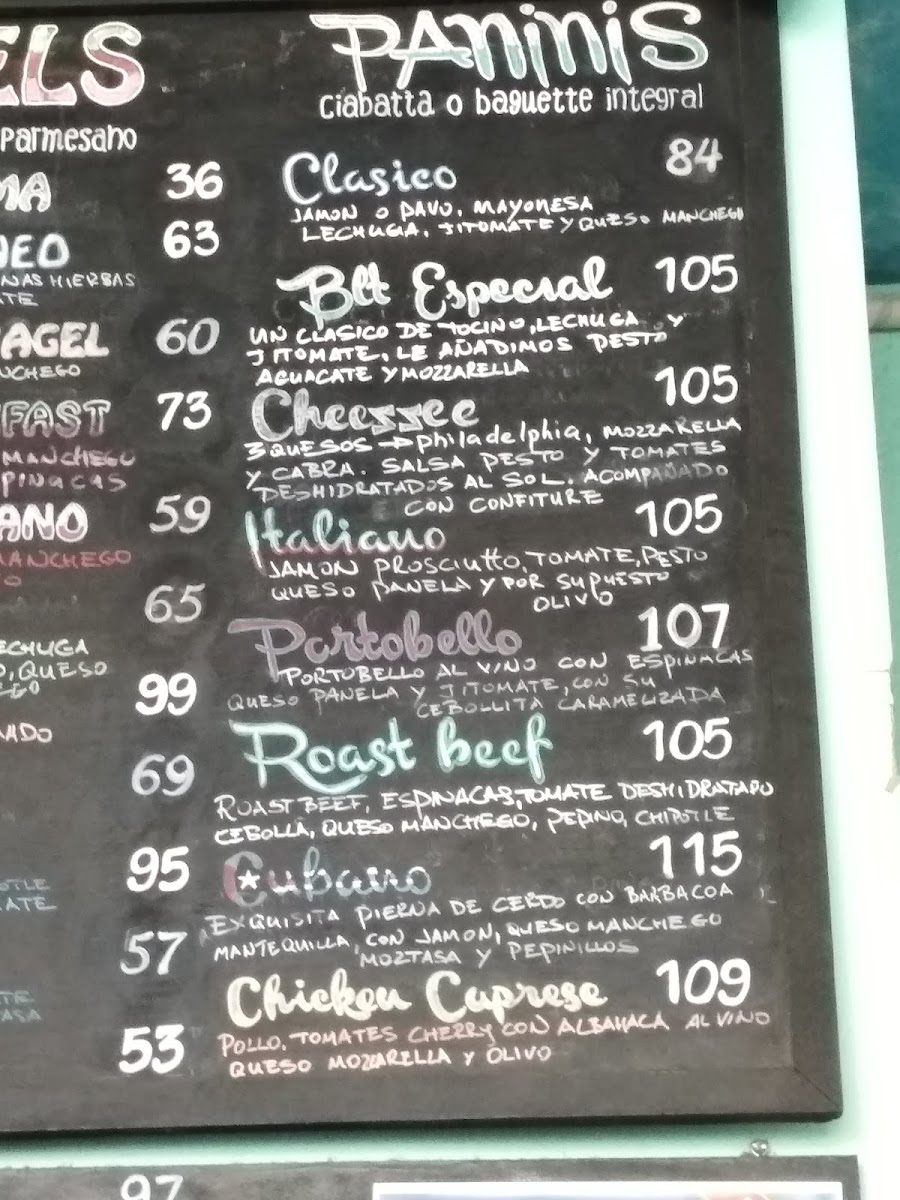 ELS
Parmesano
MA
36
DEO
63
NAS HIERBAS
TE
AGEL
60
NCHEGO
FAST
73
MANCHEGO
PINACAS
ANO
59
MANCHEGO
O
65
ECHUGA
O, QUESO
EGO
99
ADO
69
95
OTLE
ATE
57
TE
ASA
53
PANINIS
ciabatta o baguette integral
Clasico 84
JAMON O PAVO, MAYONESA
LECHUGA, JITOMATE Y QUESO MANCHEGO
Blt Especial 105
UN CLASICO DE TOCINO, LECHUGA Y
JITOMATE, LE AÑADIMOS PESTO
AGUACATE Y MOZZARELLA
Cheessee 105
3 QUESOS → Philadelphia, MOZZARELLA
Y CABRA. SALSA PESTO Y TOMATES
DESHIDRATADOS AL SOL. ACOMPAÑADO
CON CONFITURE
Italiano 105
JAMON PROSCIUTTO, TOMATE, PESTO
QUESO PANELA Y POR SUPUESTO
OLIVO
Portobello 107
PORTOBELLO AL VINO CON ESPINACAS
QUESO PANELA Y JITOMATE, CON SU
CEBOLLITA CARAMELIZADA
Roast beef 105
ROAST BEEF, ESPINACAS, TOMATE DESHIDRATADO
CEBOLLA, QUESO MANCHEGO, PEPINO, CHIPOTLE
Cubano 115
EXQUISITA PIERNA DE CERDO CON BARBACOA
MANTEQUILLA, CON JAMON, QUESO MANCHEGO
MOZTASA Y PEPINILLOS
Chicken Caprese 109
POLLO, TOMATES CHERRY CON ALBAHACA AL VINO
QUESO MOZZARELLA Y OLIVO
97